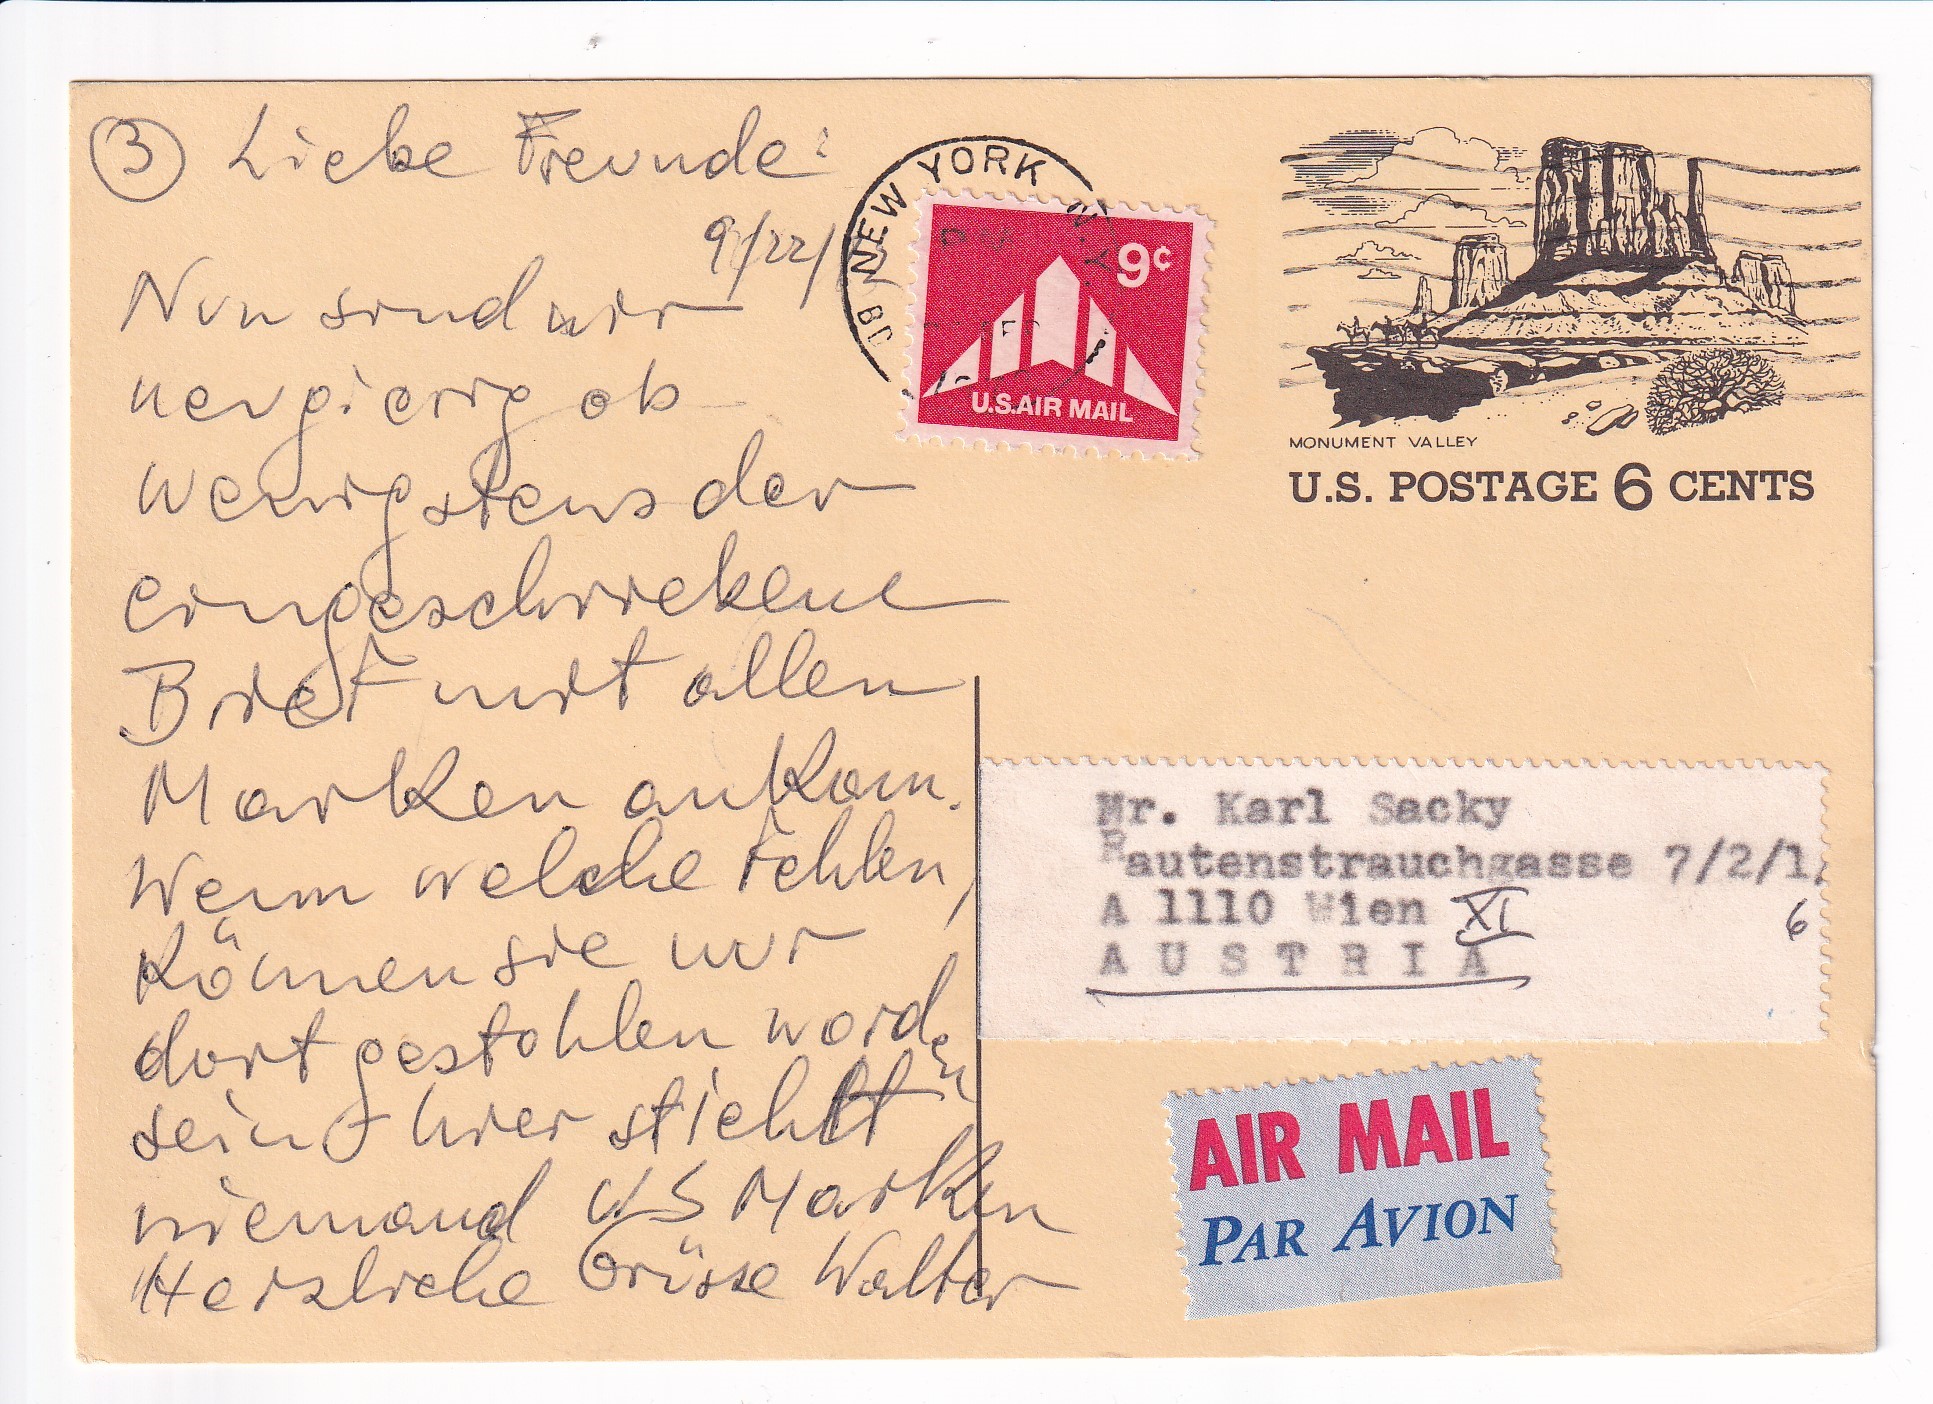 ③ Liebe Freunde:
9/22/
Nun sind wir
neugierig ob
wenigstens der
eingeschriebene
Brief mit allen
Marken ankam.
Wenn welche fehlen,
können sie nur
dort gestohlen worden
sein hier stiehlt
niemand US Marken
Herzliche Grüsse Walter
NEW YORK N.Y.
9¢
U.S. AIR MAIL
MONUMENT VALLEY
U.S. POSTAGE 6 CENTS
Mr. Karl Sacky
Rautenstrauchgasse 7/2/1,
A 1110 Wien XI 6
AUSTRIA
AIR MAIL
PAR AVION